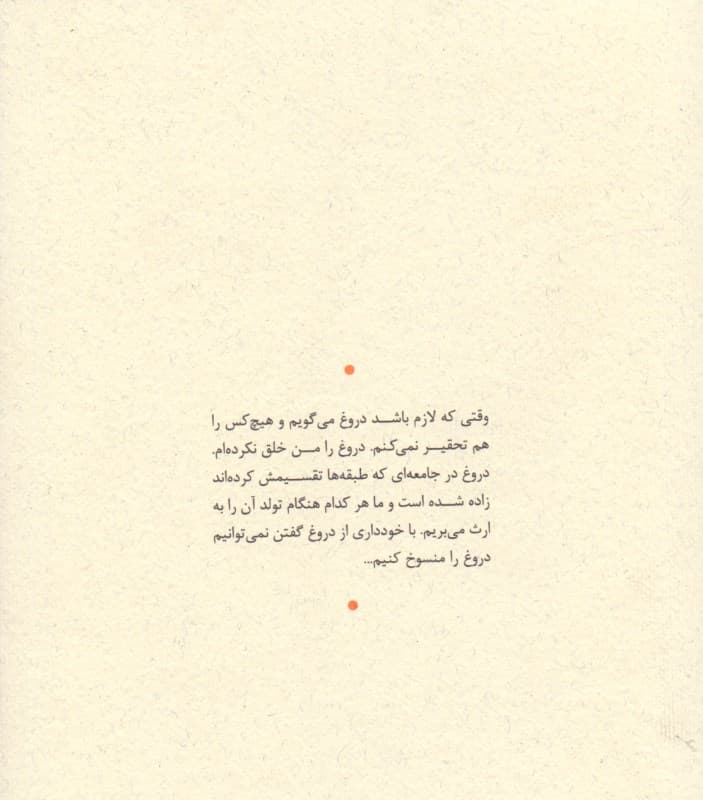 وقتی که لازم باشد دروغ می‌گویم و هیچ‌کس را
هم تحقیر نمی‌کنم. دروغ را من خلق نکرده‌ام.
دروغ در جامعه‌ای که طبقه‌ها تقسیمش کرده‌اند
زاده شده است و ما هر کدام هنگام تولد آن را به
ارث می‌بریم. با خودداری از دروغ گفتن نمی‌توانیم
دروغ را منسوخ کنیم...